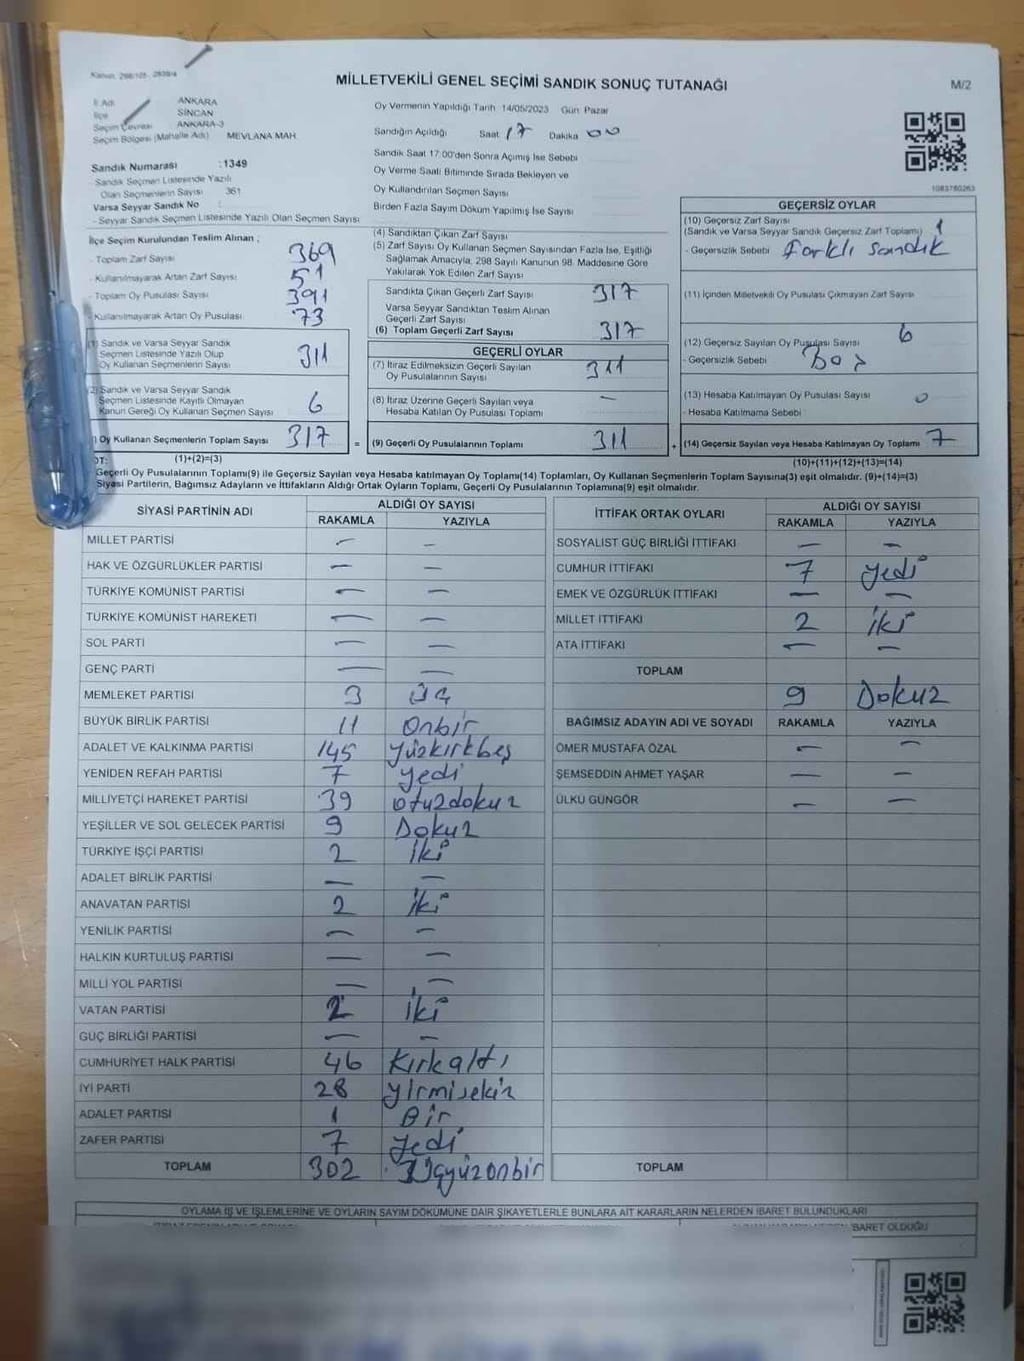 Kanun: 298/105 - 2839/4
MİLLETVEKİLİ GENEL SEÇİMİ SANDIK SONUÇ TUTANAĞI
M/2
İl Adı ANKARA
İlçe SİNCAN
Seçim Çevresi ANKARA-3
Seçim Bölgesi (Mahalle Adı) MEVLANA MAH.
Oy Vermenin Yapıldığı Tarih 14/05/2023 Gün Pazar
Sandığın Açıldığı Saat 17 Dakika 00
Sandık Saat 17:00'den Sonra Açılmış İse Sebebi
Oy Verme Saati Bitiminde Sırada Bekleyen ve
Oy Kullandırılan Seçmen Sayısı
Birden Fazla Sayım Döküm Yapılmış İse Sayısı
Sandık Numarası : 1349
- Sandık Seçmen Listesinde Yazılı
Olan Seçmenlerin Sayısı 361
Varsa Seyyar Sandık No :
- Seyyar Sandık Seçmen Listesinde Yazılı Olan Seçmen Sayısı
1083760263
İlçe Seçim Kurulundan Teslim Alınan ;
- Toplam Zarf Sayısı 369
- Kullanılmayarak Artan Zarf Sayısı 51
- Toplam Oy Pusulası Sayısı 391
- Kullanılmayarak Artan Oy Pusulası 73
(1) Sandık ve Varsa Seyyar Sandık
Seçmen Listesinde Yazılı Olup
Oy Kullanan Seçmenlerin Sayısı 311
(2) Sandık ve Varsa Seyyar Sandık
Seçmen Listesinde Kayıtlı Olmayan
Kanun Gereği Oy Kullanan Seçmen Sayısı 6
) Oy Kullanan Seçmenlerin Toplam Sayısı 317 =
(1)+(2)=(3)
(4) Sandıktan Çıkan Zarf Sayısı
(5) Zarf Sayısı Oy Kullanan Seçmen Sayısından Fazla İse, Eşitliği
Sağlamak Amacıyla, 298 Sayılı Kanunun 98. Maddesine Göre
Yakılarak Yok Edilen Zarf Sayısı
Sandıkta Çıkan Geçerli Zarf Sayısı 317
Varsa Seyyar Sandıktan Teslim Alınan
Geçerli Zarf Sayısı
(6) Toplam Geçerli Zarf Sayısı 317
GEÇERLİ OYLAR
(7) İtiraz Edilmeksizin Geçerli Sayılan
Oy Pusulalarının Sayısı 311
(8) İtiraz Üzerine Geçerli Sayılan veya
Hesaba Katılan Oy Pusulası Toplamı —
(9) Geçerli Oy Pusulalarının Toplamı 311 +
GEÇERSİZ OYLAR
(10) Geçersiz Zarf Sayısı
(Sandık ve Varsa Seyyar Sandık Geçersiz Zarf Toplamı) 1
- Geçersizlik Sebebi Farklı Sandık
(11) İçinden Milletvekili Oy Pusulası Çıkmayan Zarf Sayısı
(12) Geçersiz Sayılan Oy Pusulası Sayısı 6
- Geçersizlik Sebebi Boş
(13) Hesaba Katılmayan Oy Pusulası Sayısı 0
- Hesaba Katılmama Sebebi
(14) Geçersiz Sayılan veya Hesaba Katılmayan Oy Toplamı 7
(10)+(11)+(12)+(13)=(14)
OT:
Geçerli Oy Pusulalarının Toplamı(9) ile Geçersiz Sayılan veya Hesaba katılmayan Oy Toplamı(14) Toplamları, Oy Kullanan Seçmenlerin Toplam Sayısına(3) eşit olmalıdır. (9)+(14)=(3)
Siyasi Partilerin, Bağımsız Adayların ve İttifakların Aldığı Ortak Oyların Toplamı, Geçerli Oy Pusulalarının Toplamına(9) eşit olmalıdır.
SİYASİ PARTİNİN ADI ALDIĞI OY SAYISI
RAKAMLA YAZIYLA
MİLLET PARTİSİ — —
HAK VE ÖZGÜRLÜKLER PARTİSİ — —
TÜRKİYE KOMÜNİST PARTİSİ — —
TÜRKİYE KOMÜNİST HAREKETİ — —
SOL PARTİ — —
GENÇ PARTİ — —
MEMLEKET PARTİSİ 3 üç
BÜYÜK BİRLİK PARTİSİ 11 Onbir
ADALET VE KALKINMA PARTİSİ 145 Yüzkırkbeş
YENİDEN REFAH PARTİSİ 7 yedi
MİLLİYETÇİ HAREKET PARTİSİ 39 otuzdokuz
YEŞİLLER VE SOL GELECEK PARTİSİ 9 Dokuz
TÜRKİYE İŞÇİ PARTİSİ 2 İki
ADALET BİRLİK PARTİSİ — —
ANAVATAN PARTİSİ 2 İki
YENİLİK PARTİSİ — —
HALKIN KURTULUŞ PARTİSİ — —
MİLLİ YOL PARTİSİ — —
VATAN PARTİSİ 2 İki
GÜÇ BİRLİĞİ PARTİSİ — —
CUMHURİYET HALK PARTİSİ 46 Kırkaltı
İYİ PARTİ 28 yirmisekiz
ADALET PARTİSİ 1 Bir
ZAFER PARTİSİ 7 Yedi
TOPLAM 302 Üçyüzonbir
İTTİFAK ORTAK OYLARI ALDIĞI OY SAYISI
RAKAMLA YAZIYLA
SOSYALİST GÜÇ BİRLİĞİ İTTİFAKI — —
CUMHUR İTTİFAKI 7 yedi
EMEK VE ÖZGÜRLÜK İTTİFAKI — —
MİLLET İTTİFAKI 2 İki
ATA İTTİFAKI — —
TOPLAM 9 Dokuz
BAĞIMSIZ ADAYIN ADI VE SOYADI RAKAMLA YAZIYLA
ÖMER MUSTAFA ÖZAL — —
ŞEMSEDDİN AHMET YAŞAR — —
ÜLKÜ GÜNGÖR — —
TOPLAM
OYLAMA İŞ VE İŞLEMLERİNE VE OYLARIN SAYIM DÖKÜMÜNE DAİR ŞİKAYETLERLE BUNLARA AİT KARARLARIN NELERDEN İBARET BULUNDUKLARI
İBARET OLDUĞU